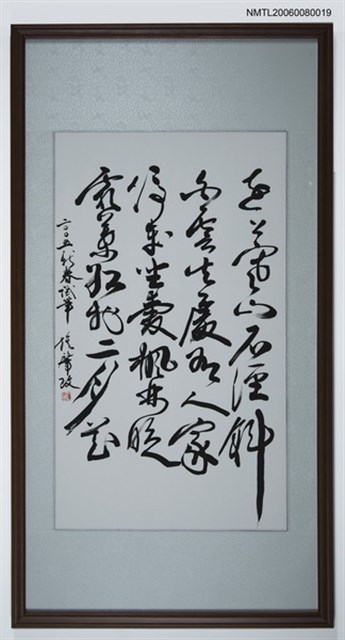 NMTL20060080019
遠上寒山石徑斜
白雲生處有人家
停車坐愛楓林晚
霜葉紅於二月花
二〇〇五新春試筆